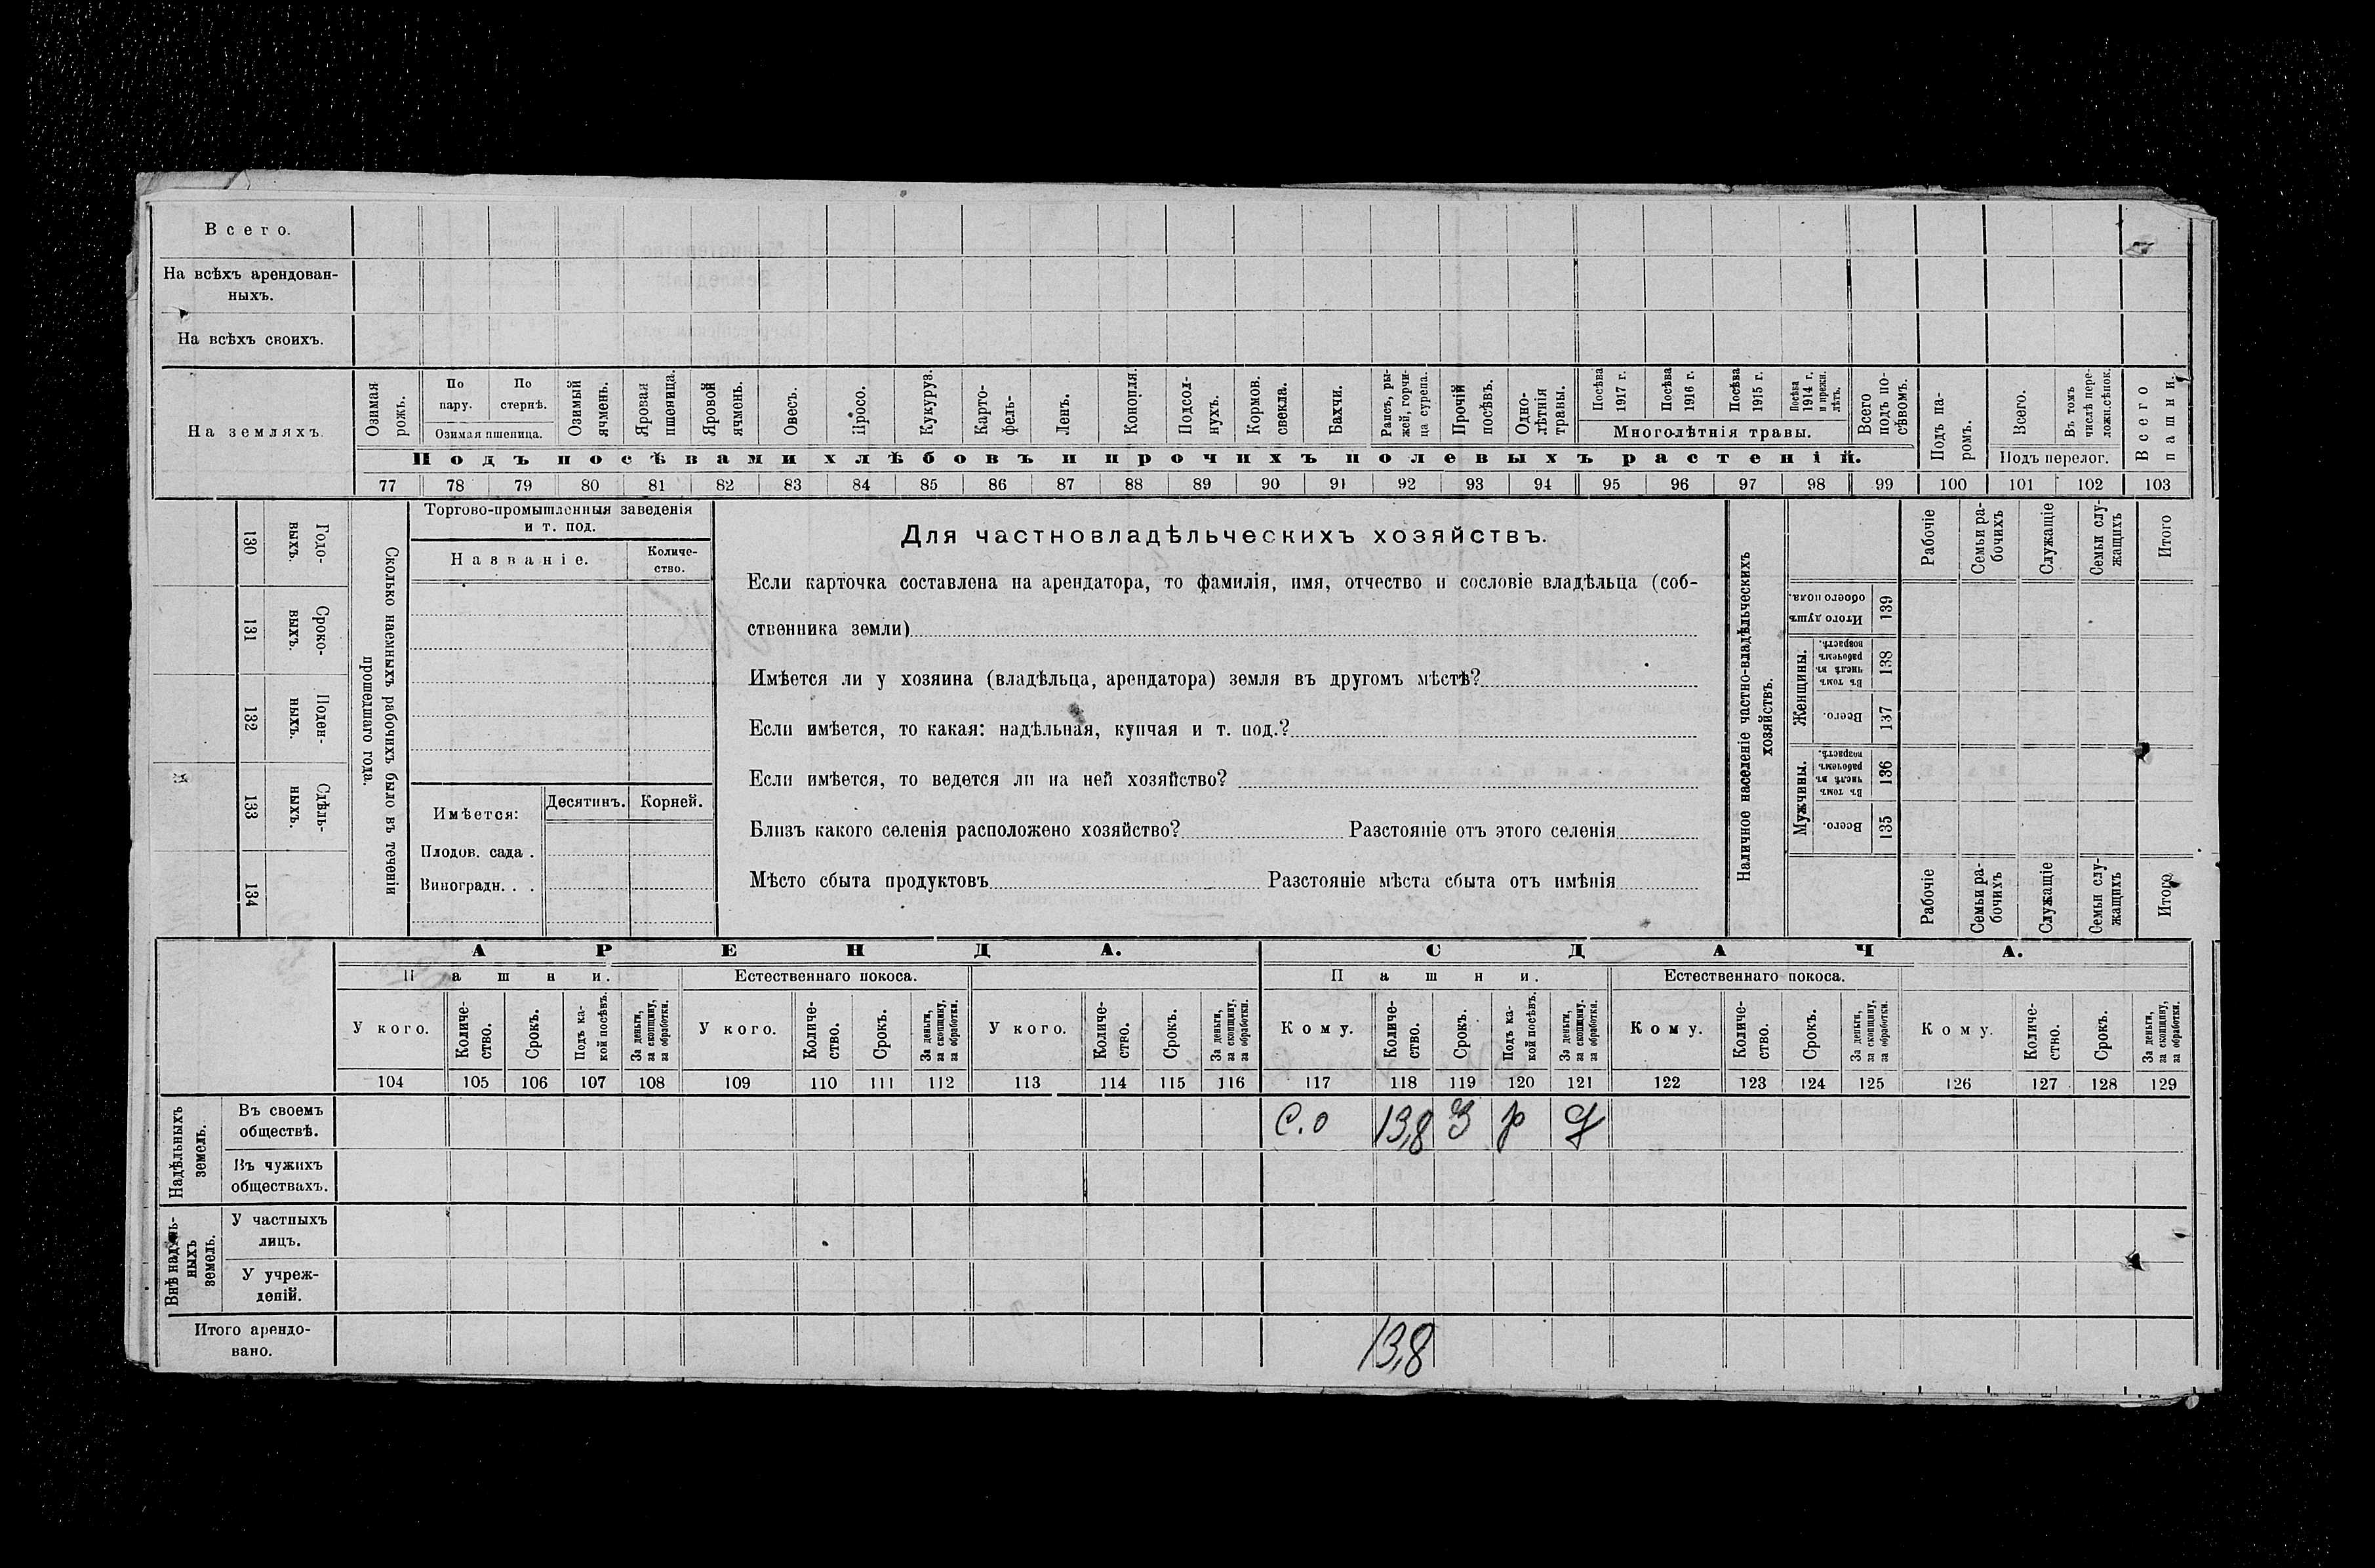 Всего.
На всѣхъ арендован-
ныхъ.
На всѣхъ своихъ.
На земляхъ.
Озимая рожь.
По пару.
По стернѣ.
Озимая пшеница.
Озимый ячмень.
Яровая пшеница.
Яровой ячмень.
Овесъ.
Просо.
Кукуруз.
Карто-
фель-
Ленъ.
Конопля.
Подсол-
нухъ.
Кормов. свекла.
Бахчи.
Рапсъ, ры-
жей, горчи-
ца сурепа.
Прочій посѣвъ.
Одно-
лѣтнія травы.
Посѣва 1917 г.
Посѣва 1916 г.
Посѣва 1915 г.
Посѣва 1914 г. и прежн. лѣтъ.
Многолѣтнія травы.
Всего подъ по-
сѣвомъ.
Подъ па-
ромъ.
Всего.
Въ томъ числѣ пере-
ложн.сѣнок.
Подъ перелог.
Всего пашни.
Подъ посѣвами хлѣбовъ и прочихъ полевыхъ растеній.
77 78 79 80 81 82 83 84 85 86 87 88 89 90 91 92 93 94 95 96 97 98 99 100 101 102 103
Годо-
выхъ.
130
Сроко-
выхъ.
131
Поден-
ныхъ.
132
Сдѣль-
ныхъ.
133
134
Сколько наемныхъ рабочихъ было въ теченіи
прошедшаго года.
Торгово-промышленныя заведенія
и т. под.
Названіе.
Количе-
ство.
Имѣется:
Десятинъ.
Корней.
Плодов. сада .
Виноградн. . .
Для частновладѣльческихъ хозяйствъ.
Если карточка составлена на арендатора, то фамилія, имя, отчество и сословіе владѣльца (соб-
ственника земли)
Имѣется ли у хозяина (владѣльца, арендатора) земля въ другомъ мѣстѣ?
Если имѣется, то какая: надѣльная, купчая и т. под.?
Если имѣется, то ведется ли на ней хозяйство?
Близъ какого селенія расположено хозяйство? Разстояніе отъ этого селенія
Мѣсто сбыта продуктовъ Разстояніе мѣста сбыта отъ имѣнія
Наличное населеніе частно-владѣльческихъ
хозяйствъ.
Рабочіе
Семьи ра-
бочихъ
Служащіе
Семьи слу-
жащихъ
Итого
Итого душъ обоего пола.
139
Женщины.
Въ томъ числѣ въ рабочемъ возрастѣ.
138
Всего.
137
Мужчины.
Въ томъ числѣ въ рабочемъ возрастѣ.
136
Всего.
135
Рабочіе
Семьи ра-
бочихъ
Служащіе
Семьи слу-
жащихъ
Итого
АРЕНДА.
СДАЧА.
Пашни.
Естественнаго покоса.
Пашни.
Естественнаго покоса.
У кого.
Количе-
ство.
Срокъ.
Подъ ка-
кой посѣвъ.
За деньги, за скопщину, за обработки.
У кого.
Количе-
ство.
Срокъ.
За деньги, за скопщину, за обработки.
У кого.
Количе-
ство.
Срокъ.
За деньги, за скопщину, за обработки.
Кому.
Количе-
ство.
Срокъ.
Подъ ка-
кой посѣвъ.
За деньги, за скопщину, за обработки.
Кому.
Количе-
ство.
Срокъ.
За деньги, за скопщину, за обработки.
Кому.
Количе-
ство.
Срокъ.
За деньги, за скопщину, за обработки.
104 105 106 107 108 109 110 111 112 113 114 115 116 117 118 119 120 121 122 123 124 125 126 127 128 129
Надѣльныхъ земель.
Въ своемъ
обществѣ.
С.о 13,8 3 р
Въ чужихъ
обществахъ.
Внѣ надѣль-
ныхъ земель.
У частныхъ
лицъ.
У учреж-
деній.
Итого арендо-
вано.
13,8